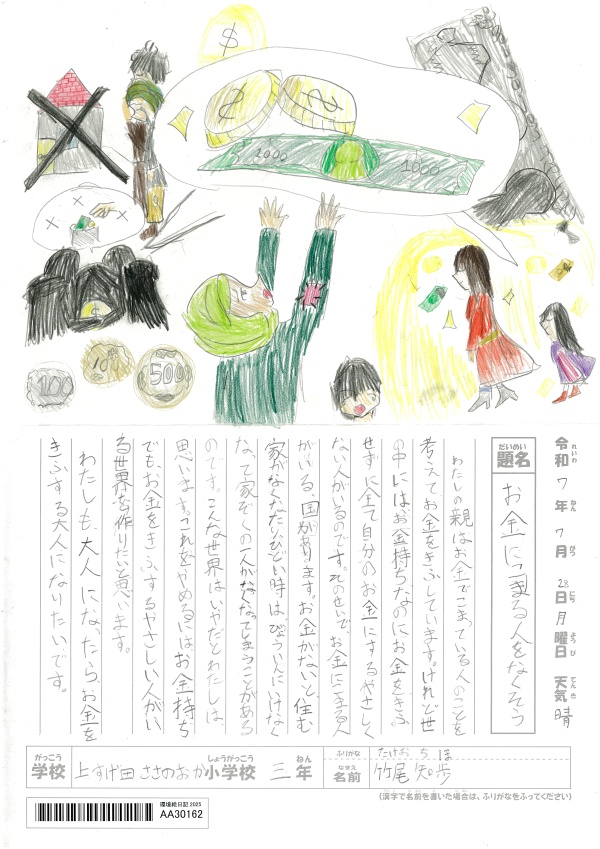 $
1000
1000
100
10
500
令和7年7月28日月曜日 天気 晴
れいわ ねん がつ にち ようび てんき
だいめい
題名
お金にこまる人をなくそう
わたしの親はお金でこまっている人のことを
考えてお金をきふしています。けれど世
の中にはお金持ちなのにお金をきふ
せずに全て自分のお金にするやさしく
ない人がいるのです。そのせいで、お金にこまる人
がいる、国があります。お金がないと、住む
家がなくなったり、ひどい時はびょういんにいけなく
なって家ぞくの一人がなくなってしまうことがある
のです。こんな世界はいやだとわたしは、
思います。これをやめるにはお金持ち
でも、お金をきふするやさしい人がい
る世界を作りたいと思います。
わたしも、大人になったら、お金を
きふする大人になりたいです。
がっこう しょうがっこう ねん
学校 上すげ田ささのおか小学校 三年
ふりがな たけお ちほ
なまえ
名前 竹尾 知歩
(漢字で名前を書いた場合は、ふりがなをふってください)
環境絵日記 2025
AA30162